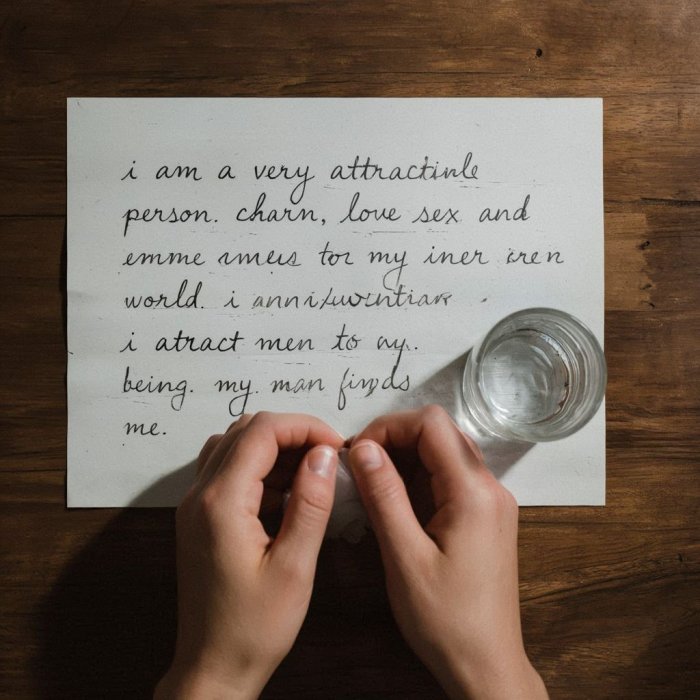 i am a very attractinle
person. charn, love sex and
emme for my iner
world. i
i atract men to my.
being. my. man finds
me.